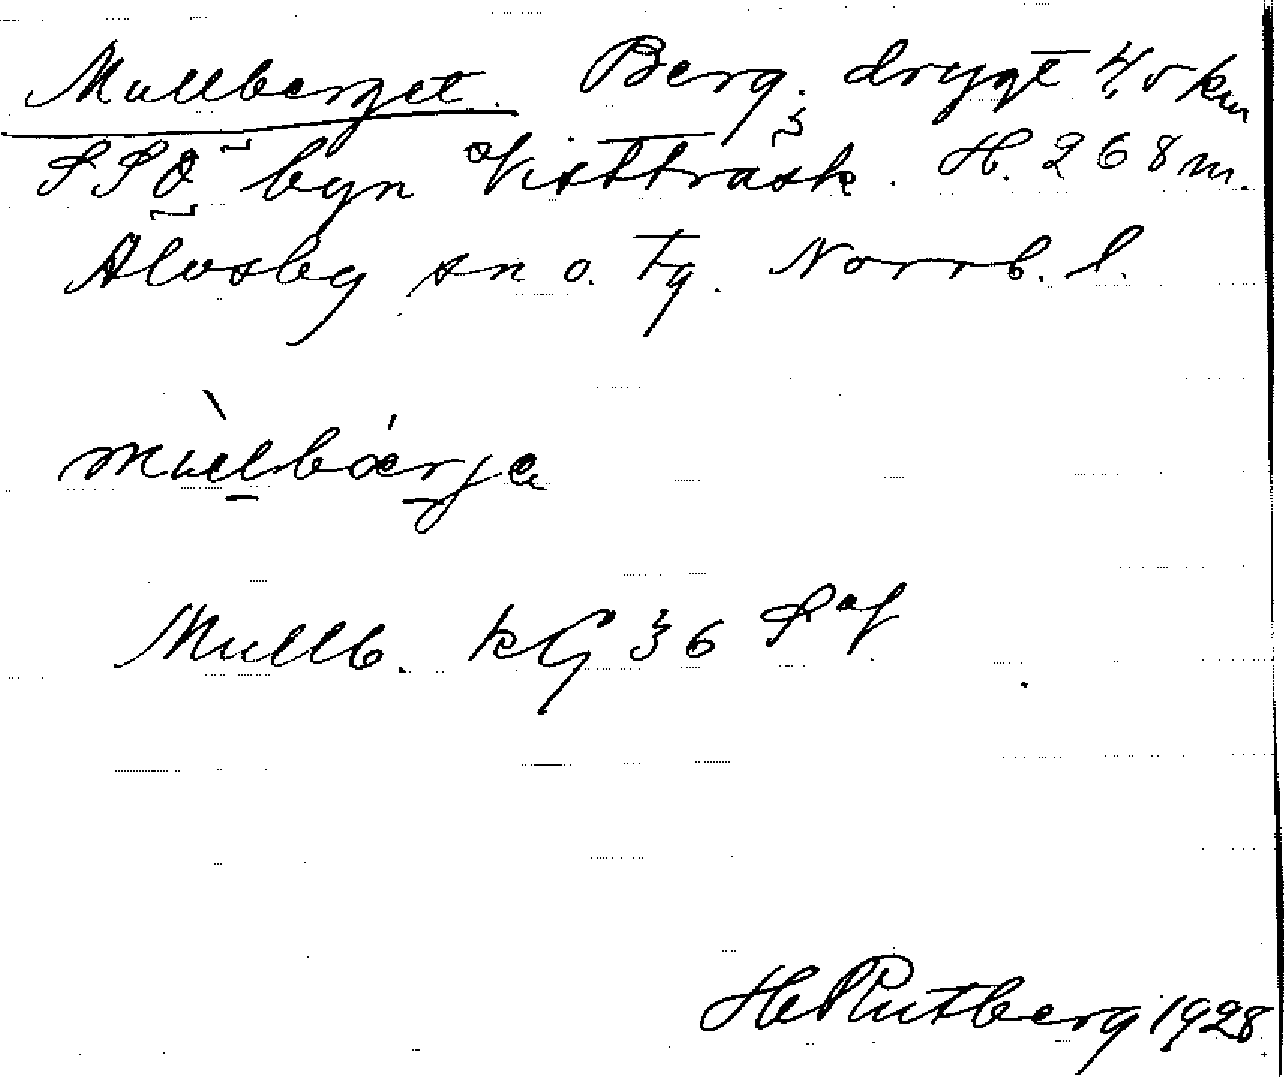 Mullberget. Berg. drygt 4,5 km
SSO byn Vistträsk. H. 268 m.
Älvsby sn o. tg. Norrb. l.
mùllbárja
Mullb. KG 36
H Rutberg 1928